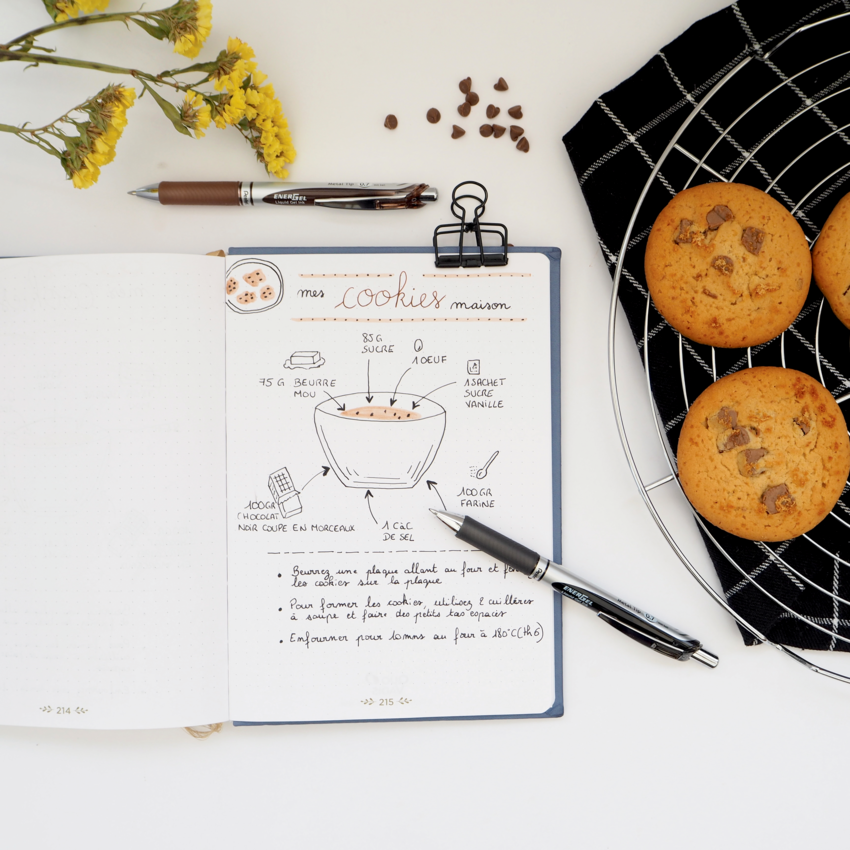 ENERGEL
Liquid Gel Ink
Pentel
mes cookies maison
85G
SUCRE
1 OEUF
75 G BEURRE
MOU
1 SACHET
SUCRE
VANILLE
100GR
CHOCOLAT
NOIR COUPE EN MORCEAUX
1 CàC
DE SEL
100GR
FARINE
• Beurrez une plaque allant au four et
les cookies sur la plaque
• Pour former les cookies, utilisez 2 cuillères
à soupe et faire des petits tas espacés
• Enfourner pour 10mns au four à 180°C (th6)
ENERGEL
0.7
214
215